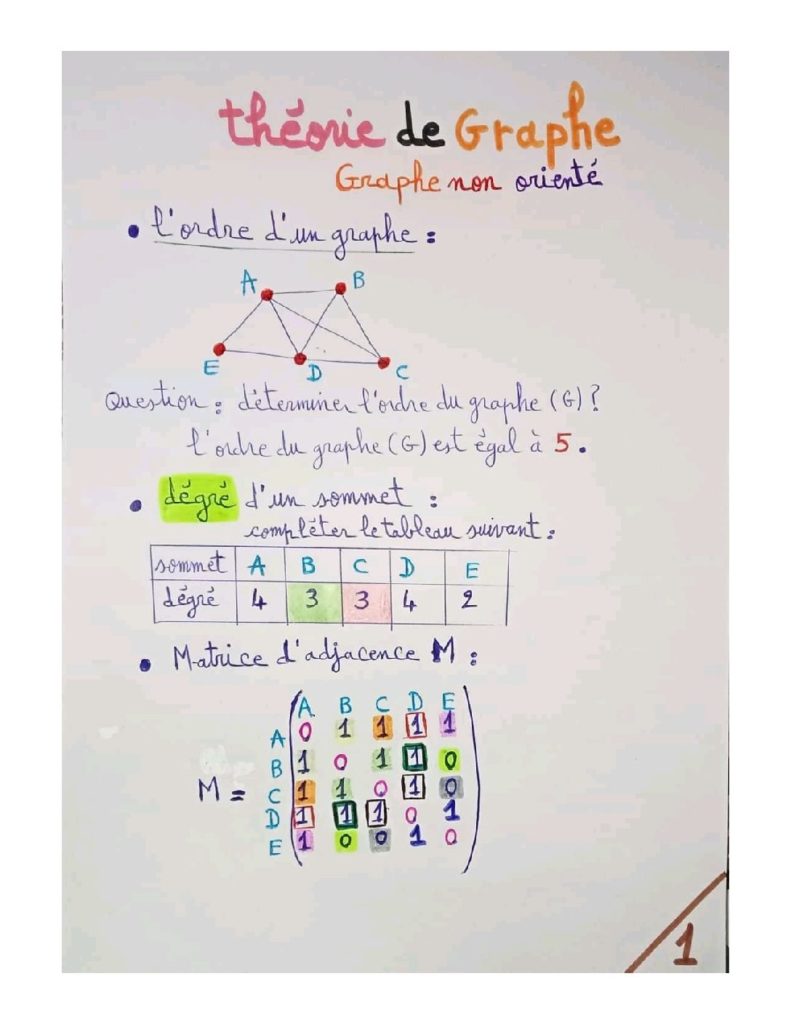 théorie de Graphe
Graphe non orienté
• l'ordre d'un graphe :
A B
E D C
Question : déterminer l'ordre du graphe (G) ?
l'ordre du graphe (G) est égal à 5.
• dégré d'un sommet :
compléter le tableau suivant :
sommet A B C D E
dégré 4 3 3 4 2
• Matrice d'adjacence M :
A B C D E
A 0 1 1 1 1
B 1 0 1 1 0
M = C 1 1 0 1 0
D 1 1 1 0 1
E 1 0 0 1 0
1